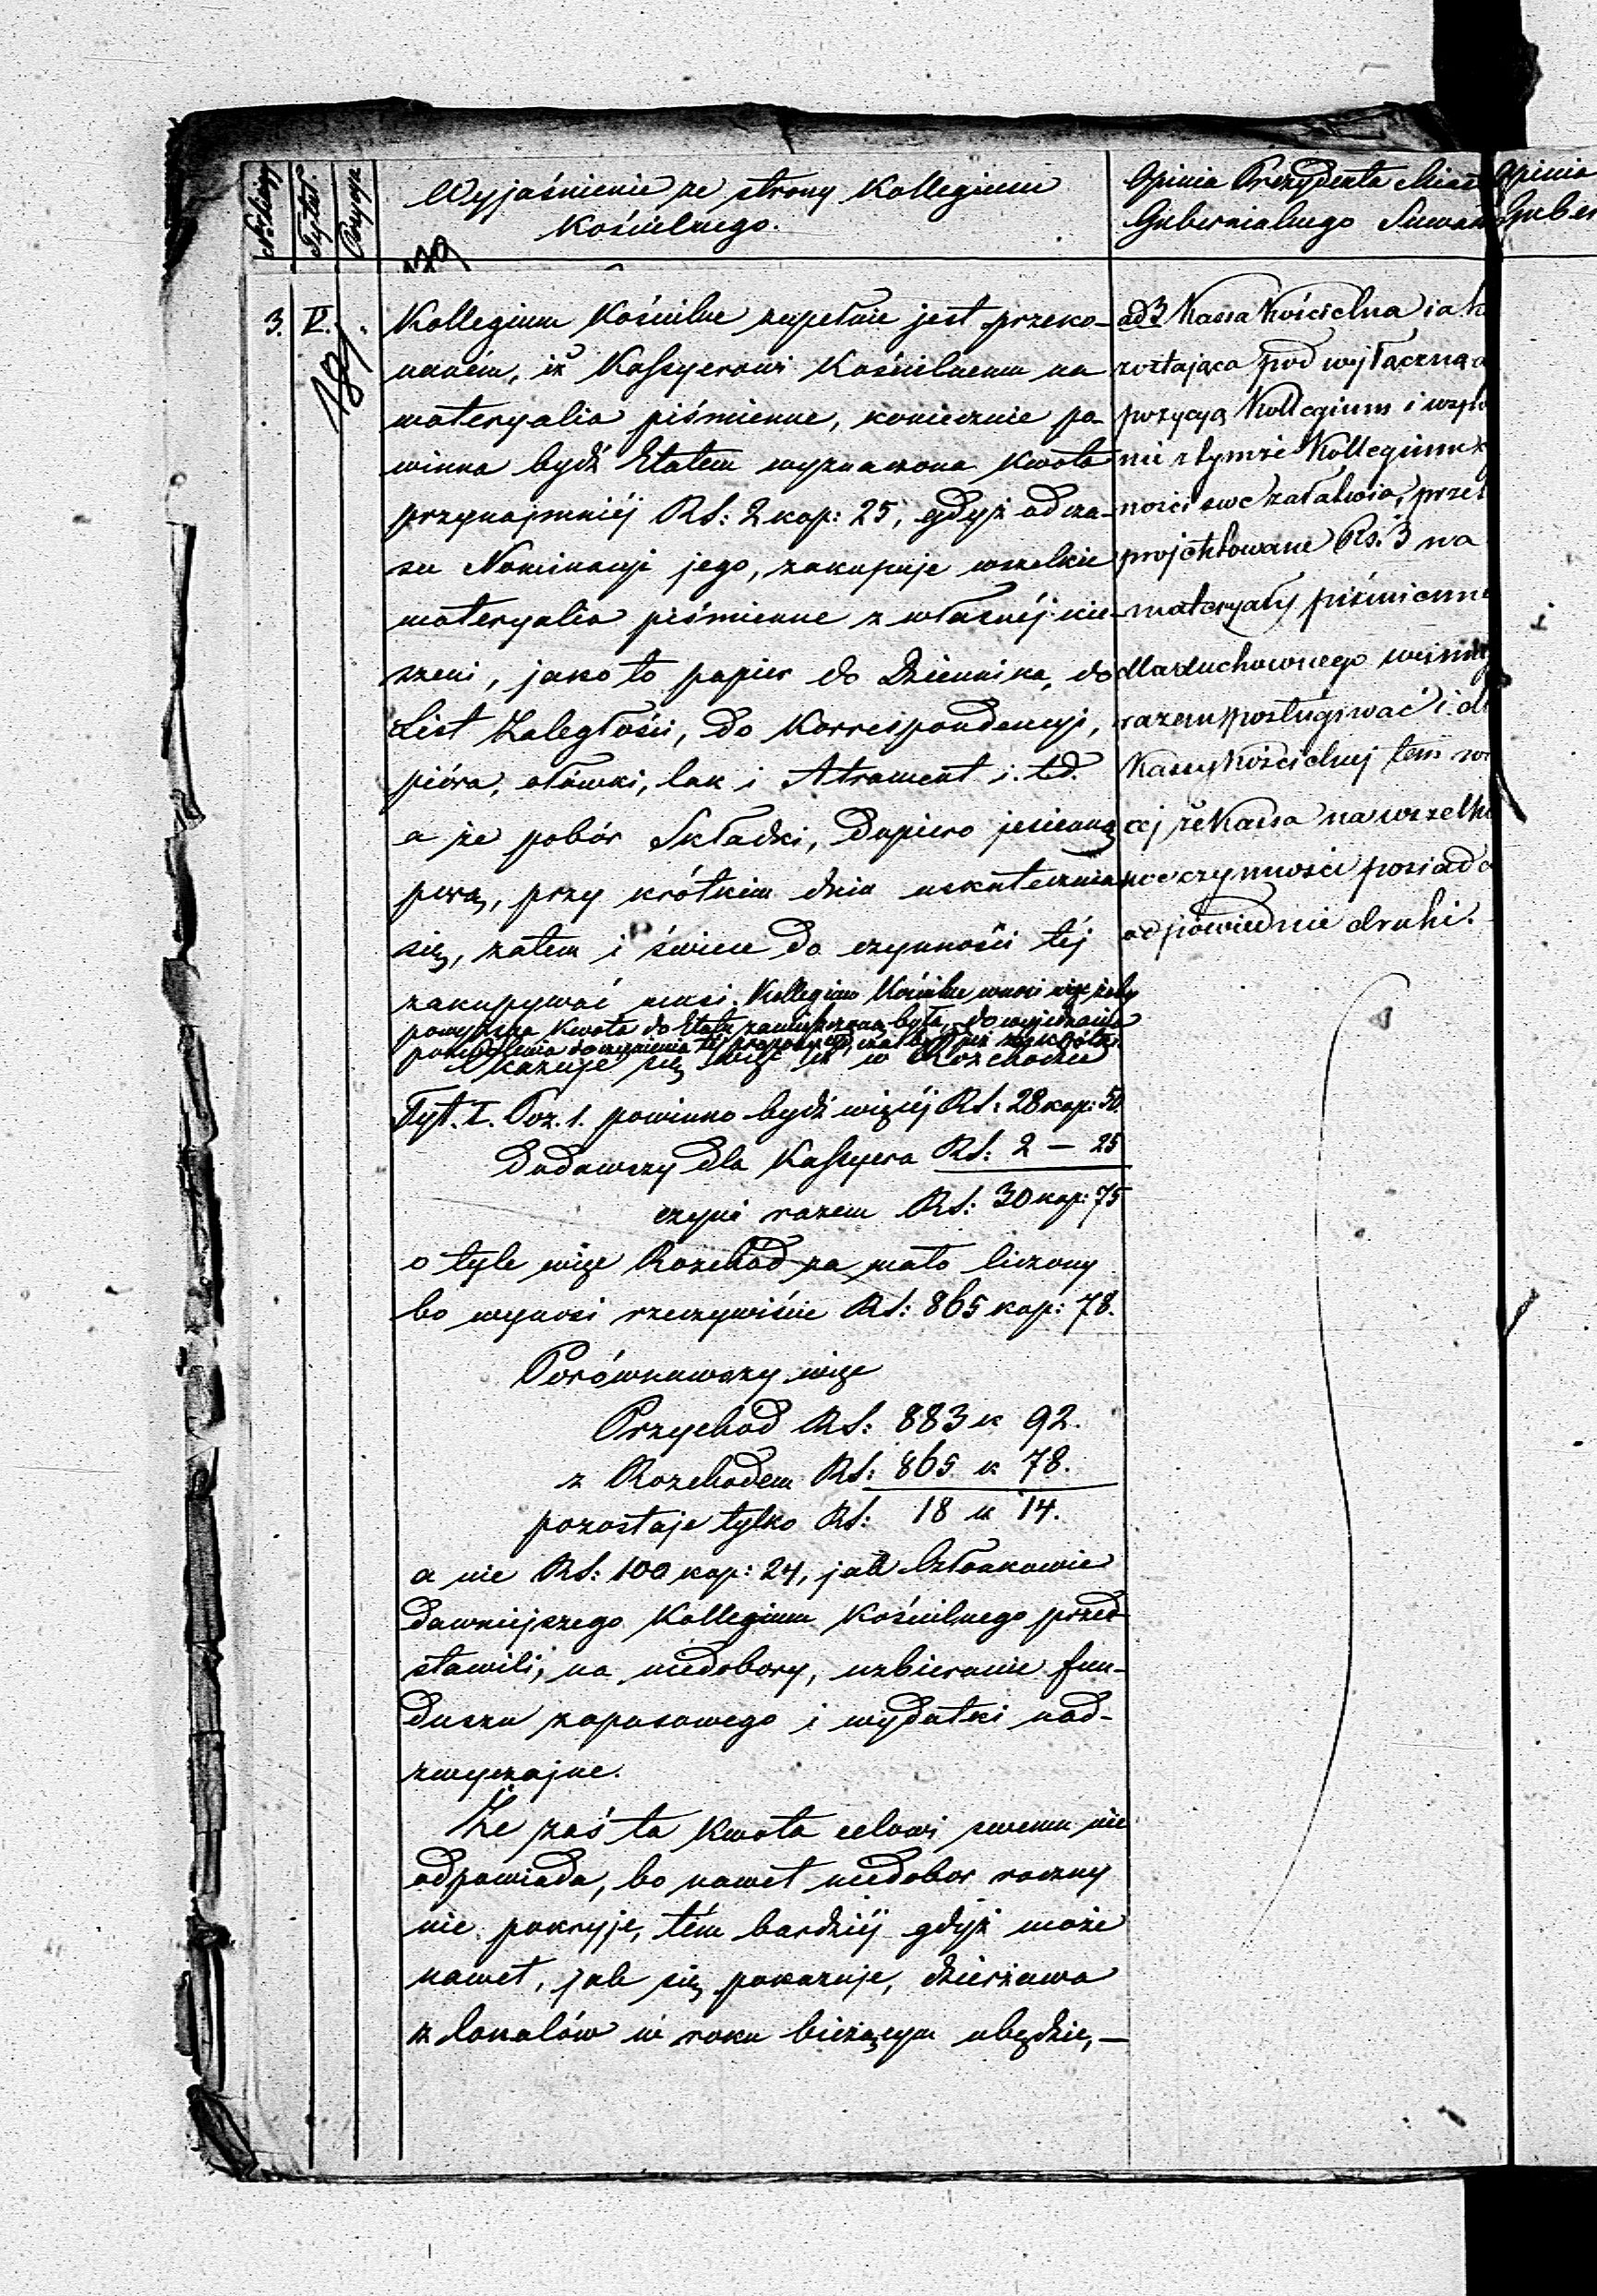 N. bieżący
Tytuł.
Pozycya
Wyjaśnienie ze strony Kollegium
Kościelnego.
Opinia Prezydenta Miast
Gubernialnego Suwał
Opinia
Guber
3. V.
187
Kollegium Kościelne zupełnie jest przeko-
naném, iż Kassyerowi Kościelnemu na
materyalia piśmienne, koniecznie po-
winna bydź Etatem wyznaczona kwota
przynajmniéj RS: 2 kop: 25, gdyż od cza-
su Nominacyi jego, zakupuje wszelkie
materyalia piśmienne z własnéj kie-
szeni, jako to papier do Dziennika, do
List Zaległości, do Korrespondencyi,
pióra, ołówki, lak i Atrament i. t. d.
a że pobór Składki, dopiero jesienną
porą, przy krótkim dniu uskutecznia
się, zatem i świece do czynności téj
zakupywać musi. Kollegium Kościelne wnosi więc żeby
powyższa kwota do Etatu zamieszczoną była, do wyjednania
Okazuje się więc iż w Rozchodzie
Tyt. I. Poz. 1. powinno bydź więcéj RS: 28 kop: 50.
Dodawszy dla Kassyera RS: 2 — 25
czyni razem RS: 30 kop: 75
o tyle więc Rozchód za mało liczony
bo wynosi rzeczywiście RS: 865 kop: 78.
Porównawszy więc
Przychód RS: 883 k 92.
z Rozchodem RS: 865 k 78.
pozostaje tylko RS: 18 k 14.
a nie RS: 100 kop: 24, jak Członkowie
dawniejszego Kollegium Kościelnego przed
stawili, na niedobory, uzbieranie fun-
duszu zapasowego i wydatki nad-
zwyczajne.
Że zaś ta kwota celowi swemu nie
odpowiada, bo nawet niedobor roczny
nie pokryje, tém bardziéj gdyż może
nawet, jak się pokazuje, dzierżawa
z lokalów w roku bieżącym ubędzie, —
ad 3 Kassa Kościelna jak
zostająca pod wyłączną
pozycyą Kollegium i wspó
nie z tymże Kollegium
ności swe załatwia, prze
projektowane Rs. 3 na
materyały piśmienne
dla duchownego winny
razem posługiwać i dl
Kassy Kościelnej tem wi
cej że Kassa na wszelki
we czynności posiada
odpowiednie druki.